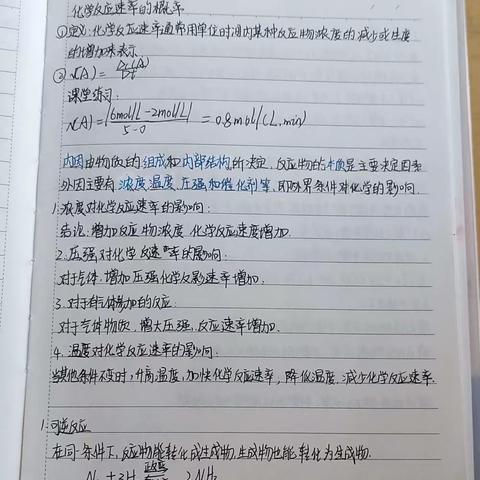 化学反应速率的概率
①定义:化学反应速率通常用单位时间内某种反应物浓度的减少或生成
的增加来表示
② v(A) = Δc(A)/Δt
课堂练习:
v(A) = |6mol/L - 2mol/L| / 5-0 = 0.8mol/(L.min)
内因由物质的组成和内部结构所决定.反应物的本质是主要决定因素
外因主要有浓度、温度、压强和催化剂等、即外界条件对化学的影响.
1.浓度对化学反应速率的影响:
结论:增加反应物浓度.化学反应速度增加.
2.压强对化学反速率的影响:
对于气体.增加压强化学反应速率增加.
3.对于有气体参加的反应:
对于气体物质,增大压强,反应速率增加.
4.温度对化学反应速率的影响:
当其他条件不变时,升高温度,加快化学反应速率,降低温度.减少化学反应速率.
1.可逆反应
在同一条件下,反应物能转化成生成物,生成物也能转化为生成物.
N₂ + 3H₂ 2NH₃